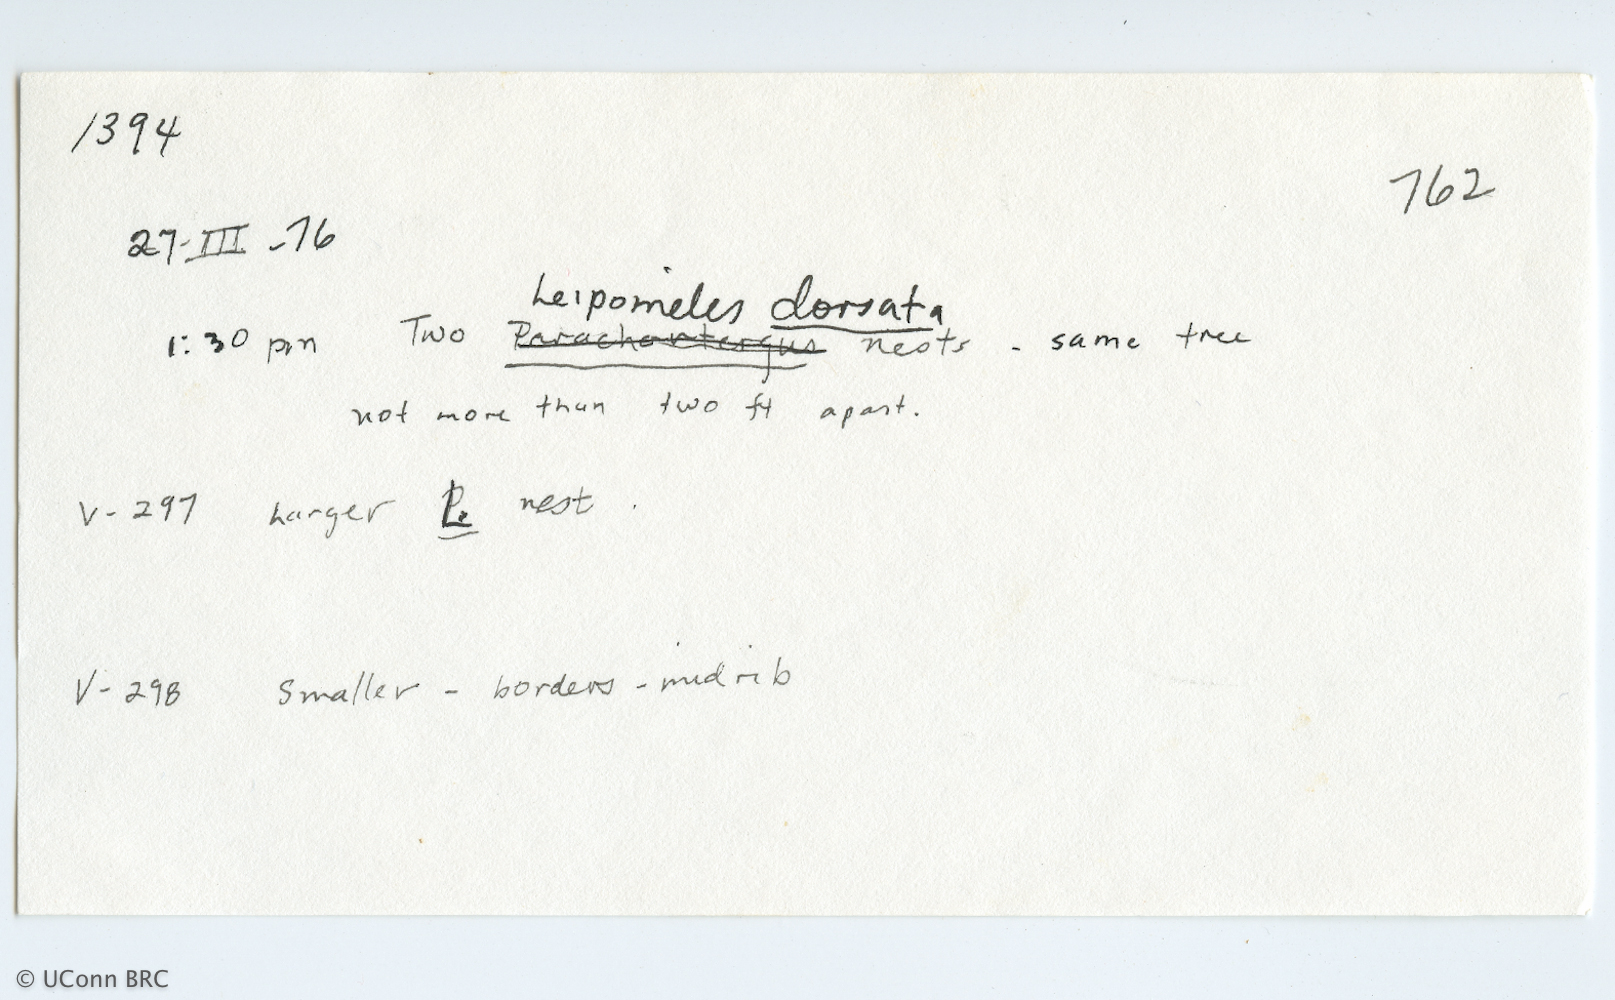 1394
762
27-III-76
Leipomeles dorsata
1:30 pm Two Parachartergus nests - same tree
not more than two ft apart.
V-297 Larger P. nest.
V-298 Smaller - borders - midrib
© UConn BRC